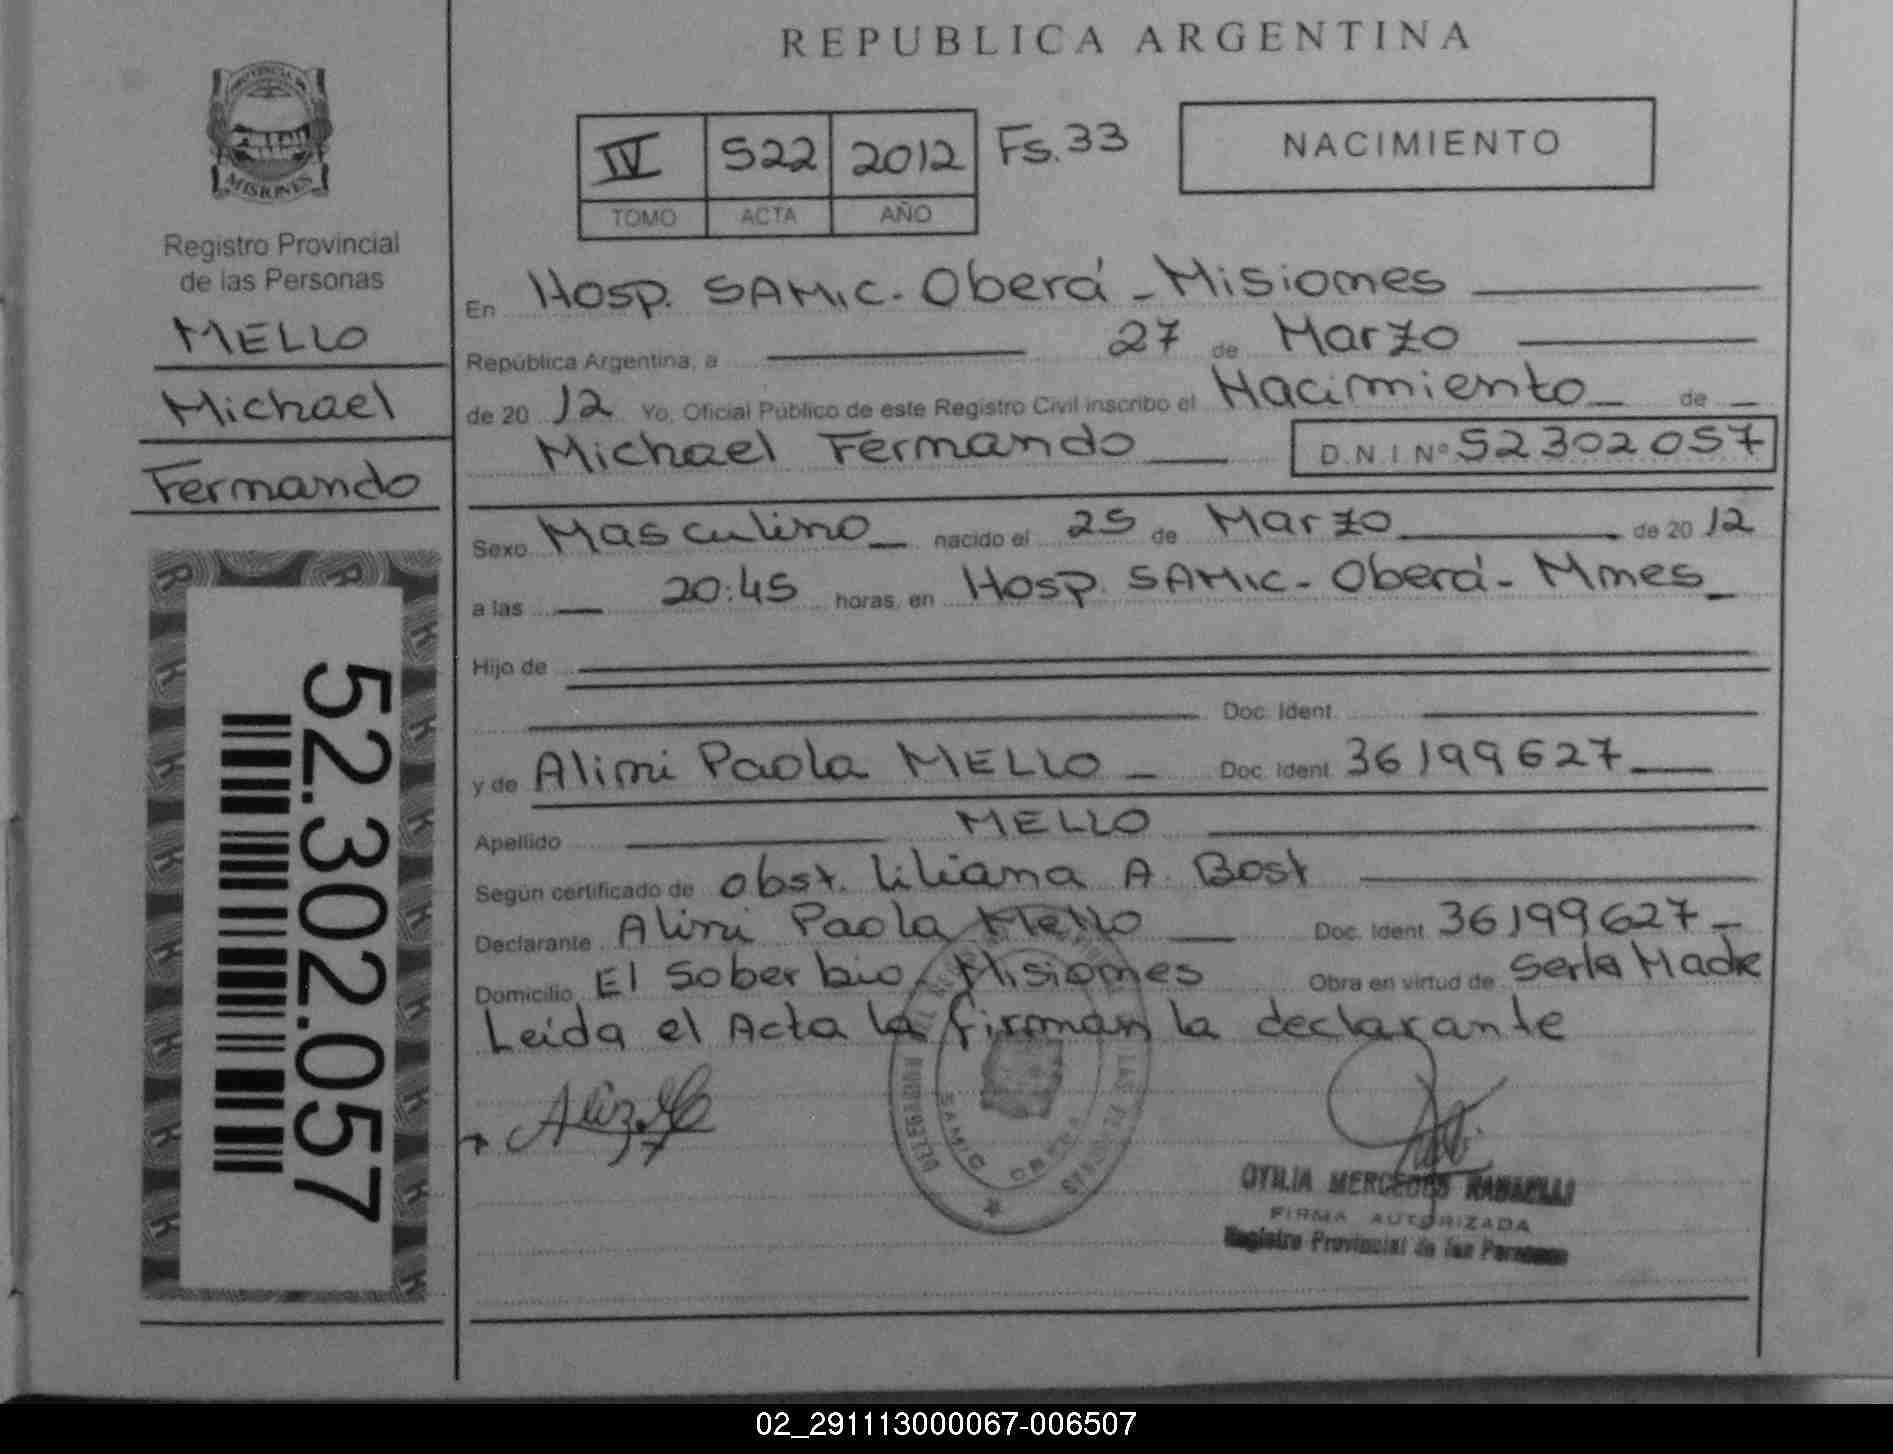 REPUBLICA ARGENTINA
PROVINCIA DE
MISIONES
Registro Provincial
de las Personas
MELLO
Michael
Fernando
52.302.057
IV 522 2012 Fs. 33
TOMO ACTA AÑO
NACIMIENTO
En Hosp. SAMIC - Oberá - Misiones
República Argentina, a 27 de Marzo
de 20 12 Yo, Oficial Público de este Registro Civil inscribo el Nacimiento de
Michael Fernando D.N.I Nº 52302057
Sexo Masculino nacido el 25 de Marzo de 20 12
a las 20:45 horas, en Hosp. SAMIC - Oberá - Mnes
Hijo de
Doc. Ident.
y de Alini Paola MELLO Doc. Ident 36199627
Apellido MELLO
Según certificado de obst. Liliana A. Bost
Declarante Alini Paola Mello Doc. Ident 36199627
Domicilio El Soberbio, Misiones Obra en virtud de Serla Madre
Leída el Acta la firman la declarante
DELEGACION
SAMIC OBERA
LAS PERSONAS
OTILIA MERCEDES
FIRMA AUTORIZADA
Registro Provincial de las Personas
02_291113000067-006507